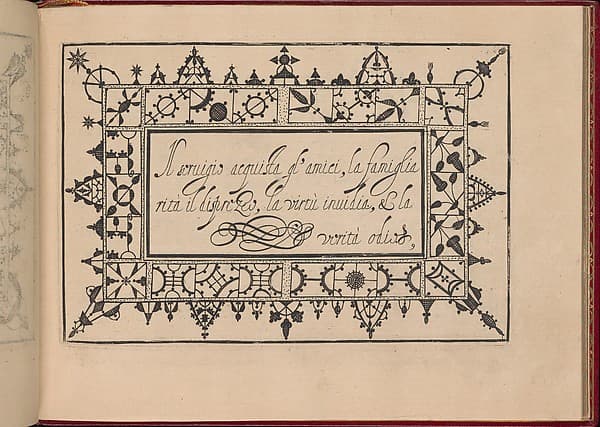 Il seruigio acquista gl'amici, la famiglia
rità il disprezzo, la virtù inuidia, & la
verità odio,